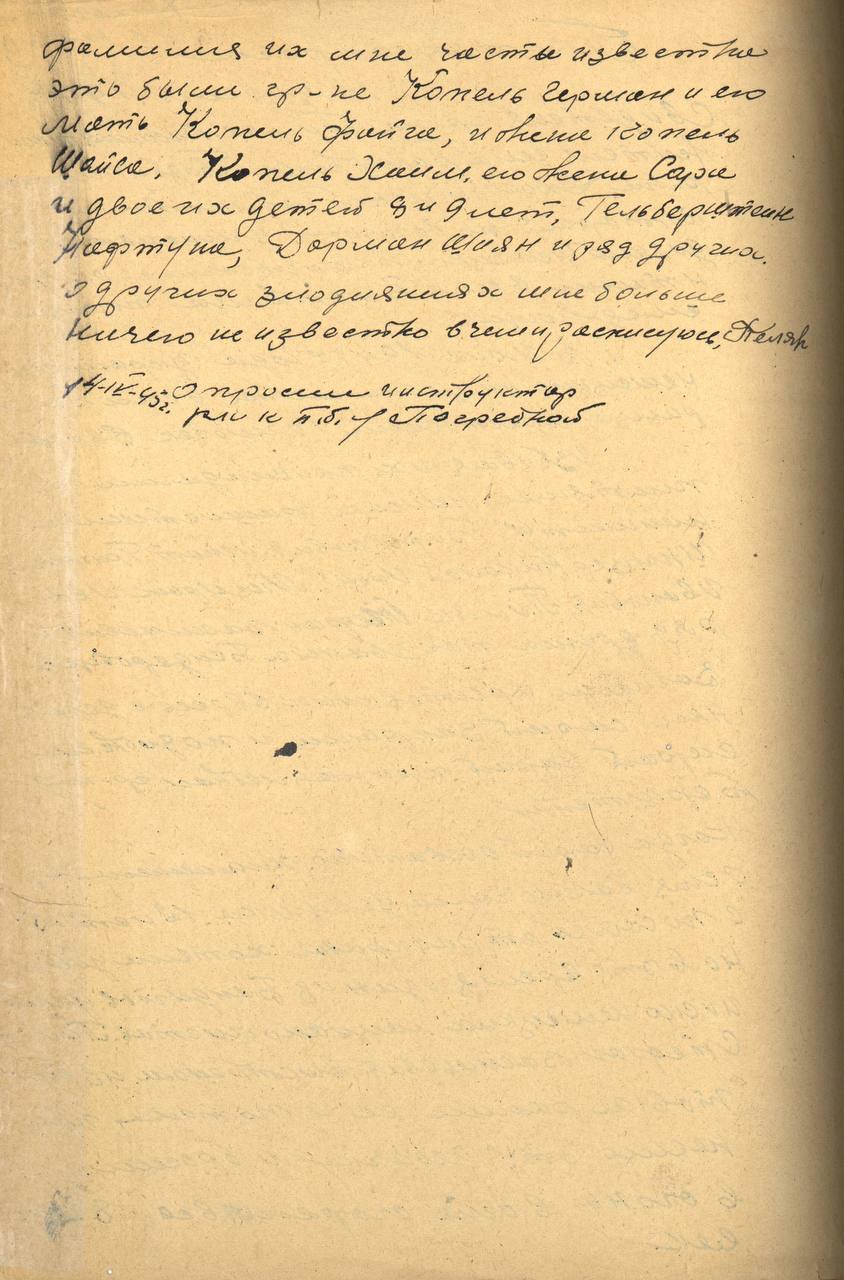 фамилия их мне часты известна
это были гр-не Копель Герман и его
мать Копель Файга, и жена Копель
Шайса. Копель Хаим, его жена Сара
и двое их детей 8 и 9 лет, Гельберштейн
Нафтула, Дорман Шиян и ряд других.
о других злодияниях мне больше
ничего не известно в чем и росписуюсь,
14-IV-45г. Опросил инструктор
рик к п.б. / Погребной